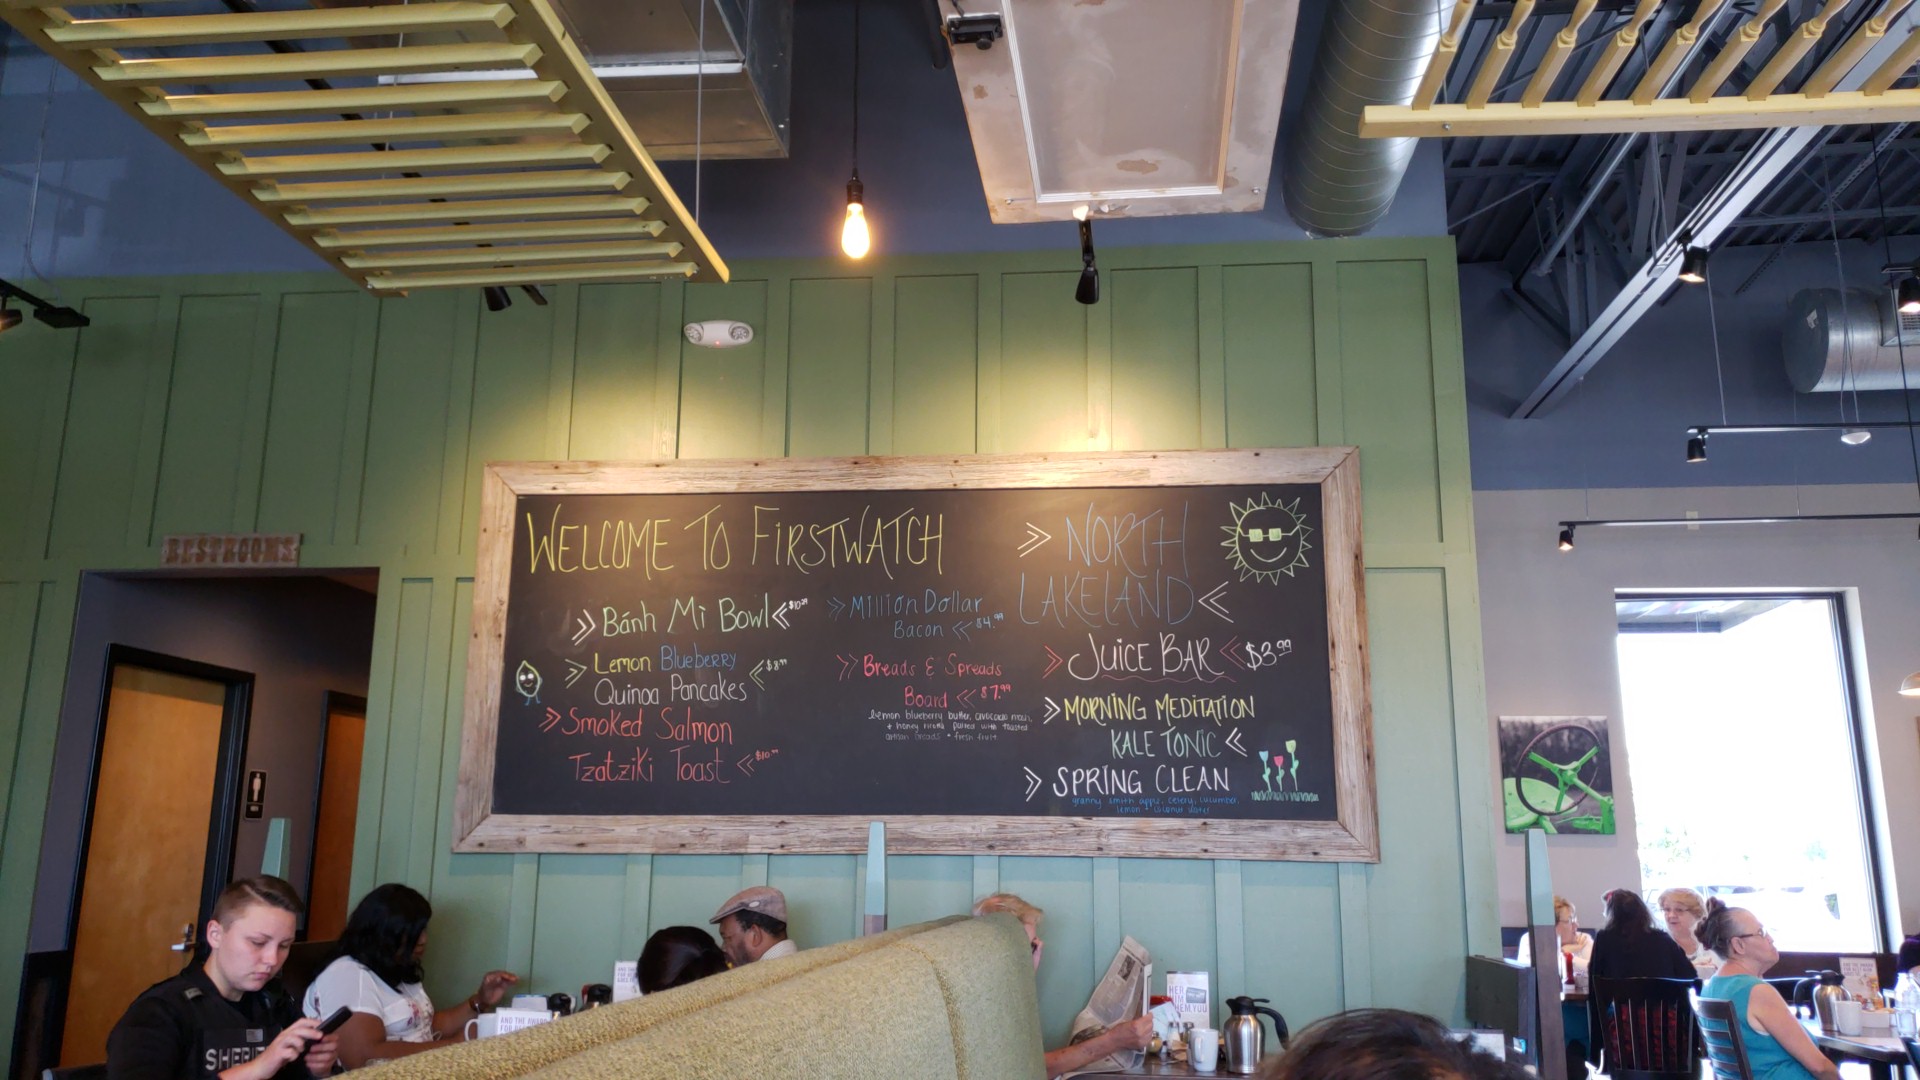 RESTROOMS
WELCOME TO FIRSTWATCH
» NORTH
LAKELAND «
» Bánh Mi Bowl «
» Lemon Blueberry
Quinoa Pancakes « $8.99
» Smoked Salmon
Tzatziki Toast «
» Million Dollar
Bacon « $4.99
» Breads & Spreads
Board « $7.99
lemon blueberry butter, avocado mash,
+ honey ricotta paired with toasted
artisan breads + fresh fruit
» JUICE BAR « $3.99
» MORNING MEDITATION
KALE TONIC «
» SPRING CLEAN
granny smith apple, celery, cucumber,
lemon + coconut water
SHERIFF
AND THE AWARD